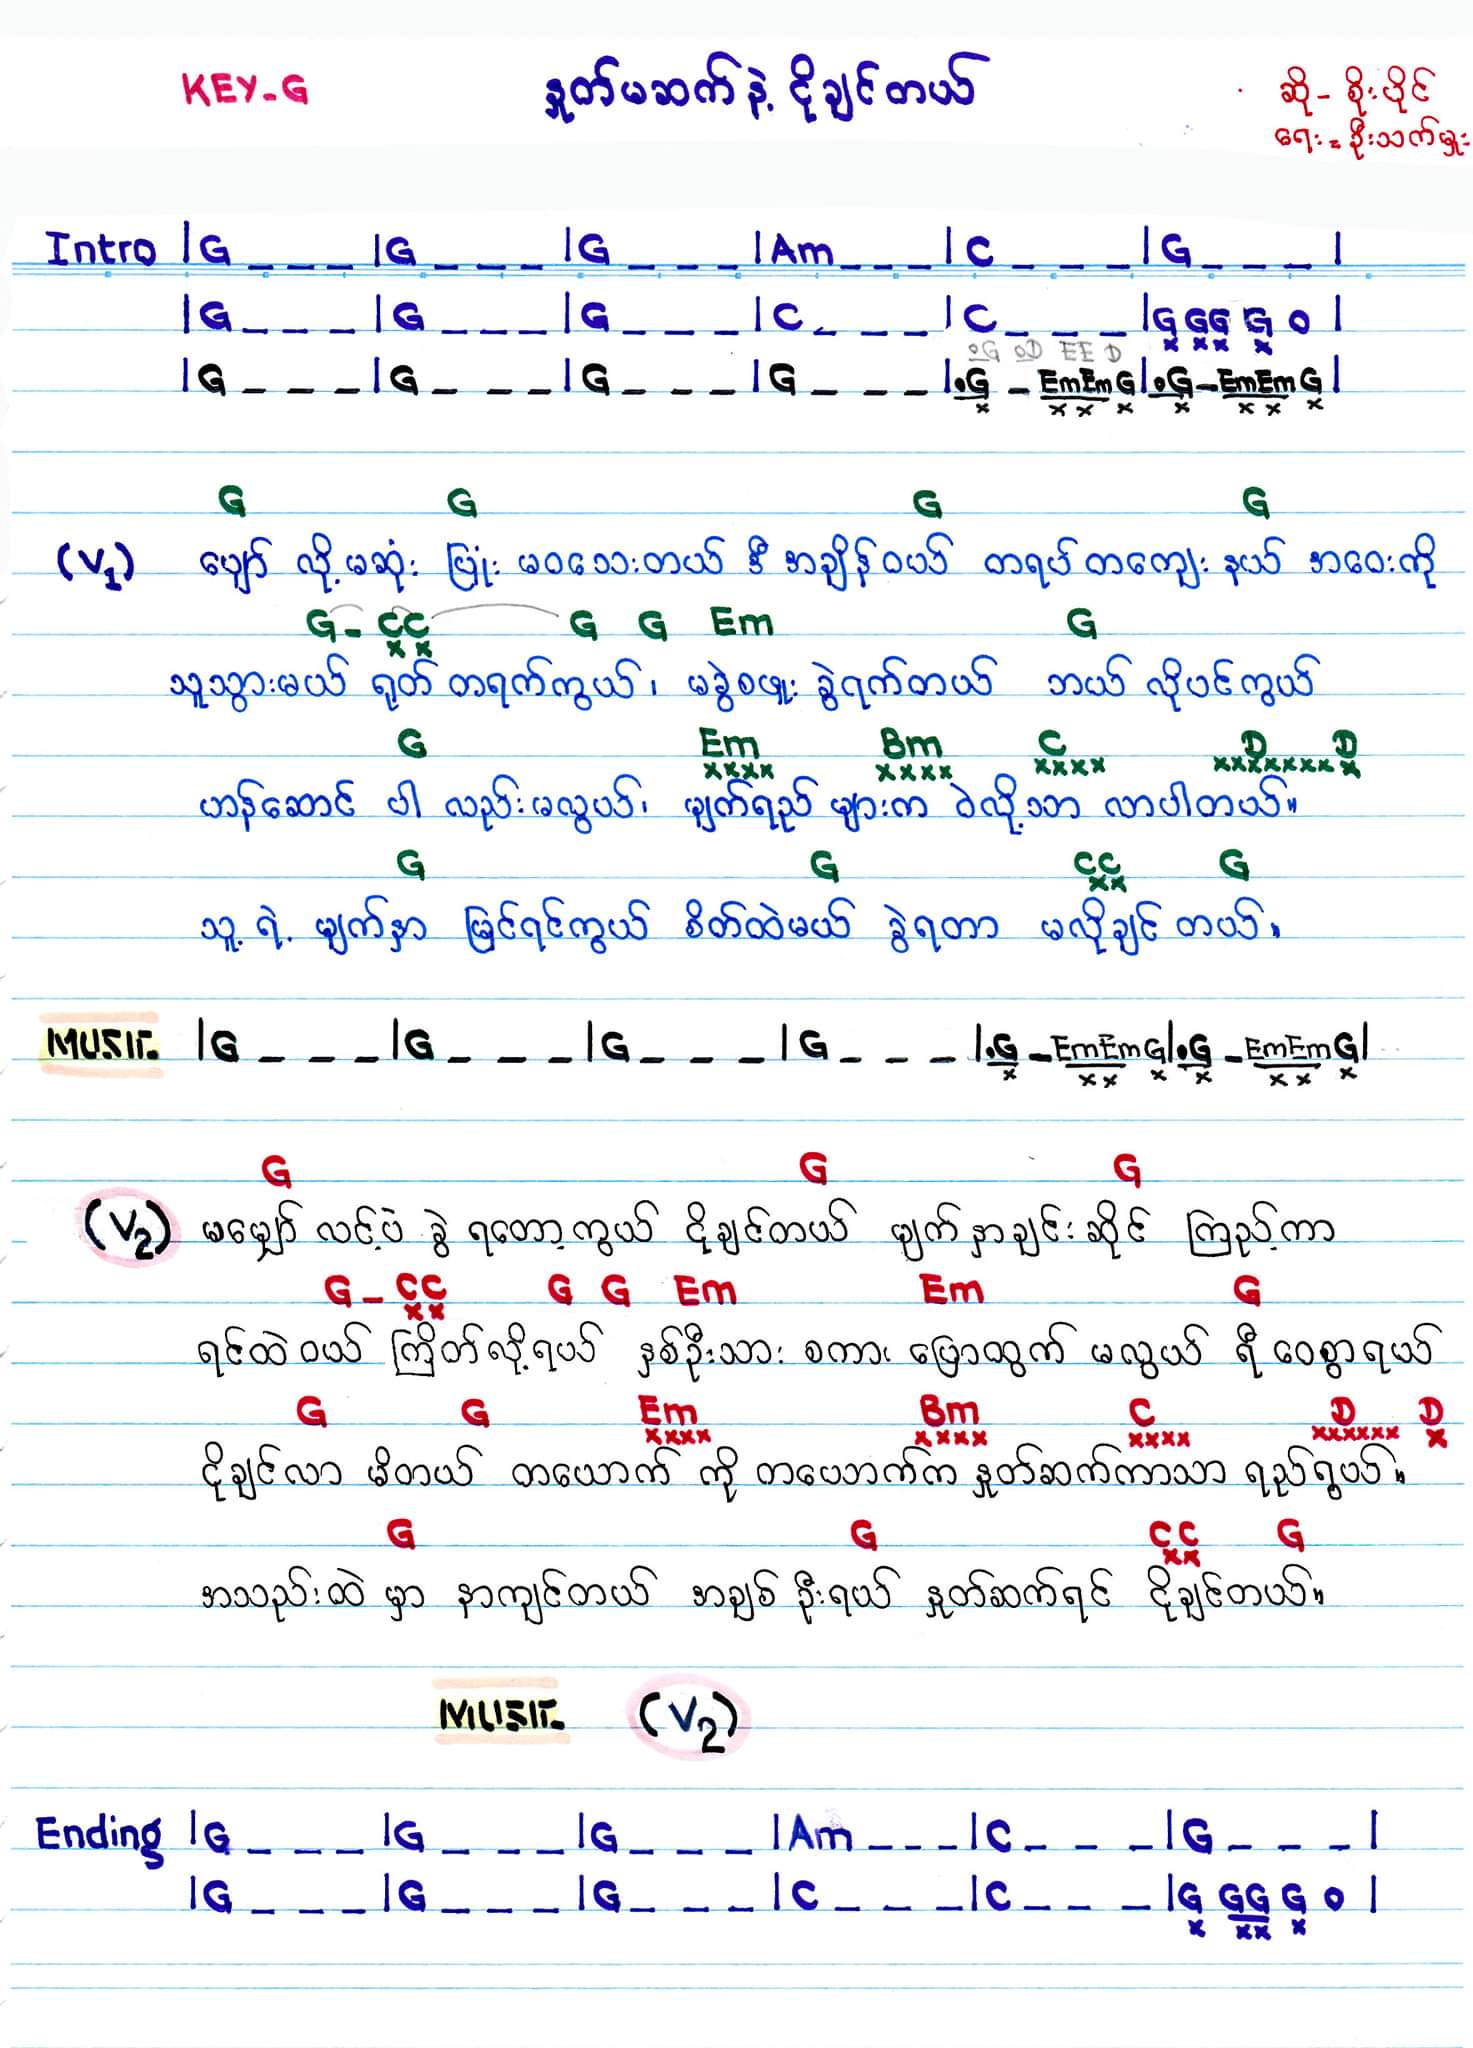 KEY-G နှုတ်မဆက်နဲ့ ငိုချင်တယ် ဆို - စိုးပိုင်
ရေး = ဦးသက်မှူး
Intro |G _ _ _ |G _ _ _ |G _ _ _ |Am _ _ _ |C _ _ _ |G _ _ _ |
|G _ _ _ |G _ _ _ |G _ _ _ |C _ _ _ |C _ _ _ |G GG G o |
x x x x
oG oD EE D
|G _ _ _ |G _ _ _ |G _ _ _ |G _ _ _ |.G _ EmEm G |.G _ EmEm G |
x x x x x x x x
G G G G
(V1) ပျော် လို့ မဆုံး ပြုံး မဝသေးတယ် ဒီ အချိန်ဝယ် တရပ် တကျေး နယ် အဝေးကို
G - CC G G Em G
x x
သူသွားမယ် ရုတ် တရက်ကွယ်၊ မခွဲစဖူး ခွဲရက်တယ် ဘယ် လိုပင်ကွယ်
G Em Bm C D D
xxxx xxxx xxxx xxxxxxx x
ဟန်ဆောင် ပါ လည်းမလွယ်၊ မျက်ရည် များက ဝဲလို့သာ လာပါတယ်။
G G CC G
xx
သူ့ ရဲ့ မျက်နှာ မြင်ရင်ကွယ် စိတ်ထဲမယ် ခွဲရတာ မလိုချင် တယ်။
MUSIC |G _ _ _ |G _ _ _ |G _ _ _ |G _ _ _ |.G _ EmEm G |.G _ EmEm G |
x x x x x x x x
G G G
(V2) မပျော် လင့်ပဲ ခွဲ ရတော့ကွယ် ငိုချင်တယ် မျက် နှာချင်းဆိုင် ကြည့်ကာ
G - CC G G Em Em G
x x
ရင်ထဲဝယ် ကြိတ်လို့ရယ် နှစ်ဦးသား စကား ပြောထွက် မလွယ် ရီ ဝေစွာရယ်
G G Em Bm C D D
xxxx xxxx xxxx xxxxxx x
ငိုချင်လာ မိတယ် တယောက် ကို တယောက်က နှုတ်ဆက်ကာသာ ရည်ရွယ်။
G G CC G
xx
အသည်းထဲ မှာ နာကျင်တယ် အချစ် ဦးရယ် နှုတ်ဆက်ရင် ငိုချင်တယ်။
MUSIC (V2)
Ending |G _ _ _ |G _ _ _ |G _ _ _ |Am _ _ _ |C _ _ _ |G _ _ _ |
|G _ _ _ |G _ _ _ |G _ _ _ |C _ _ _ |C _ _ _ |G GG G o |
x xx x